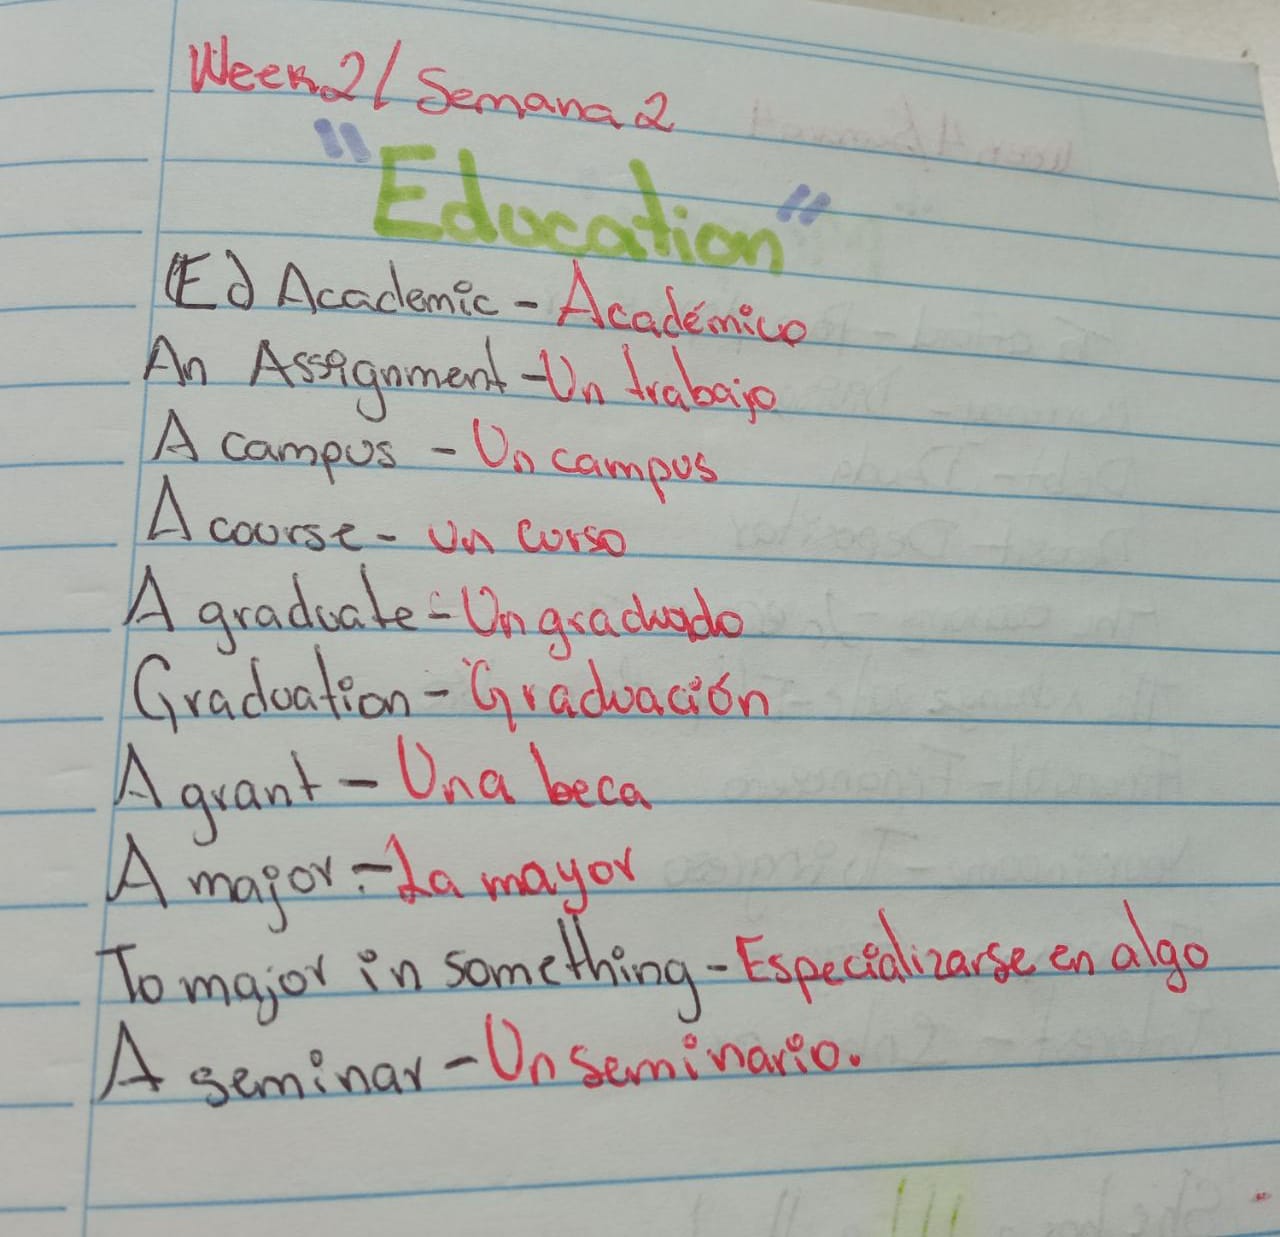 Week 2 / Semana 2
"Education"
(Ed) Academic - Académico
An Assignment - Un trabajo
A campus - Un campus
A course - un curso
A graduate - Un graduado
Graduation - Graduación
A grant - Una beca
A major - La mayor
To major in something - Especializarse en algo
A seminar - Un seminario.